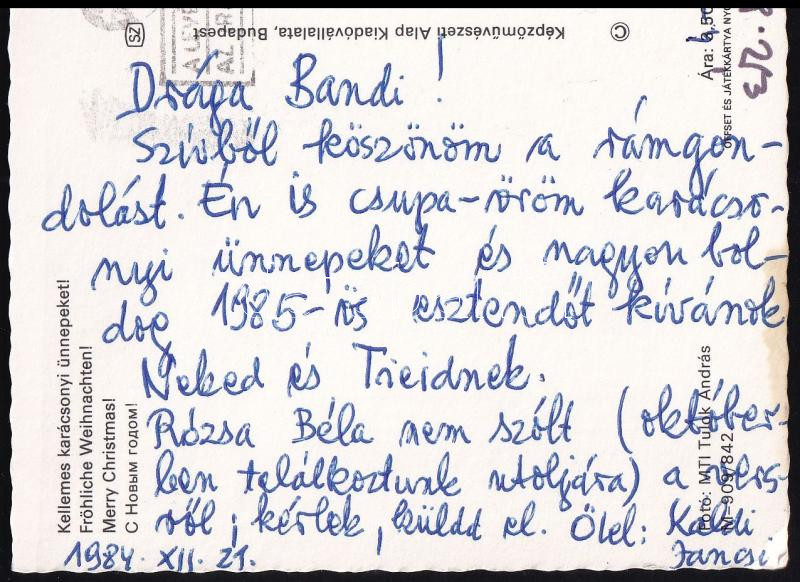 Képzőművészeti Alap Kiadóvállalata, Budapest
SZ
©
Ára: 
OFFSET ÉS JÁTÉKKÁRTYA NY
Drága Bandi!
Szívből köszönöm a rámgon-
dolást. Én is csupa-öröm karácso-
nyi ünnepeket és nagyon bol-
dog 1985-ös esztendőt kívánok
Neked és Tieidnek.
Rózsa Béla nem szólt (október-
ben találkoztunk utoljára) a vers-
ről, kérlek, küldd el. Ölel: Kaldi
Jancsi
1984. XII. 21.
Kellemes karácsonyi ünnepeket!
Fröhliche Weihnachten!
Merry Christmas!
С Новым годом!
Fotó: MTI Tulok András